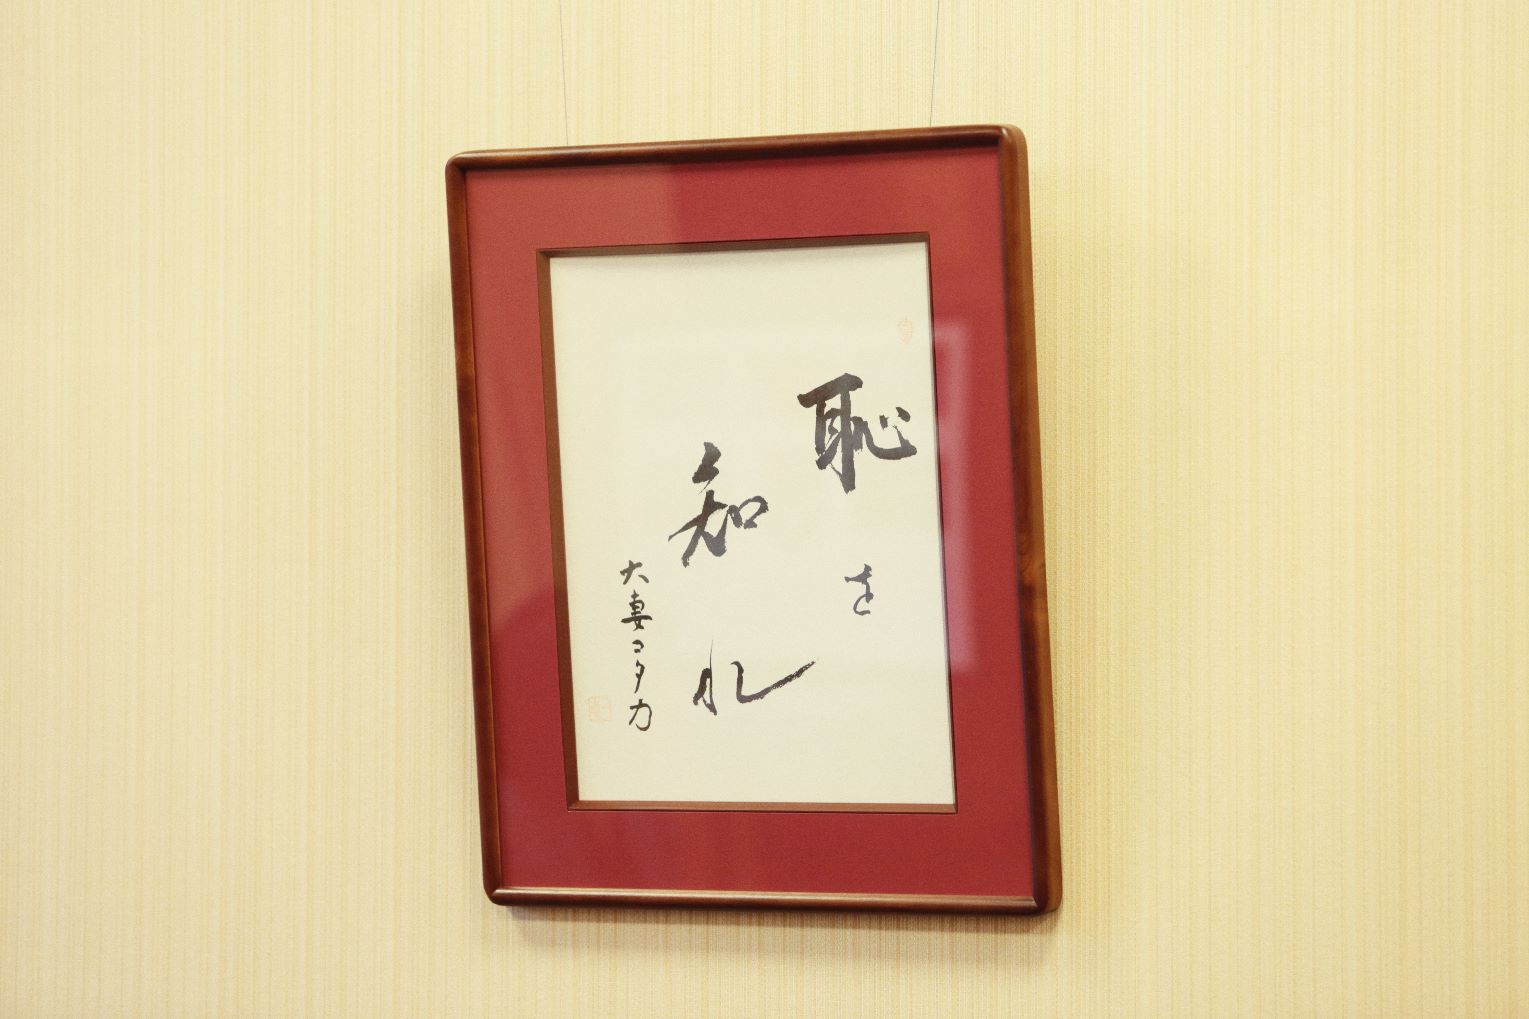 恥を
知れ
大妻コタカ